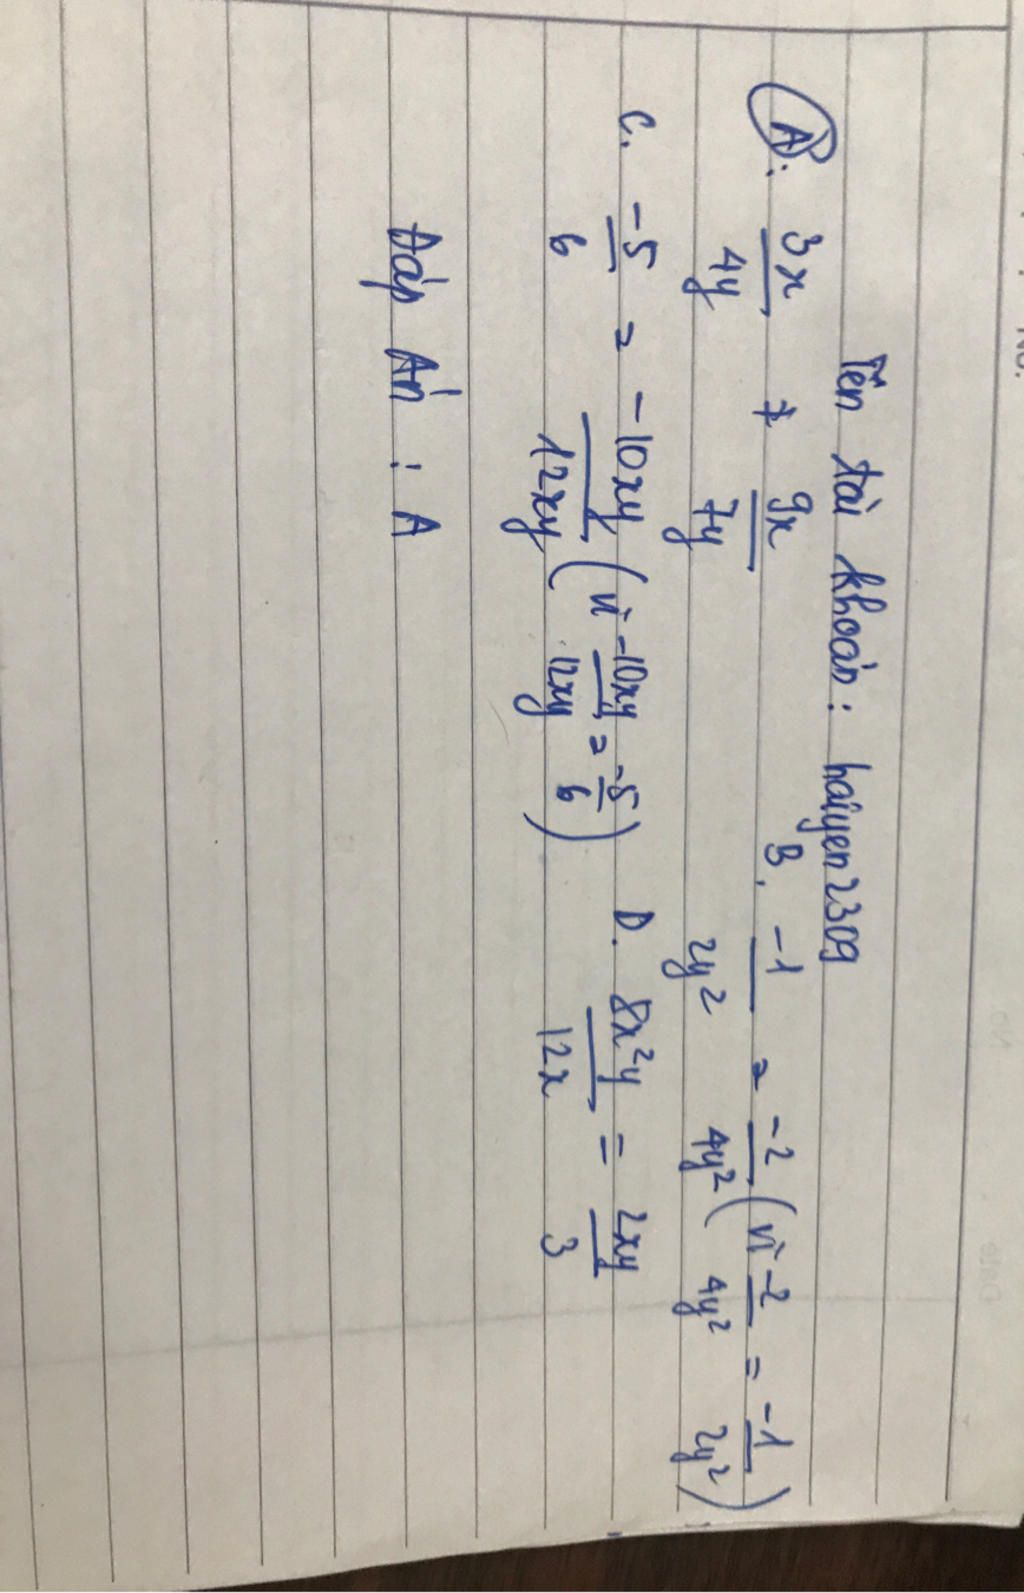 Tên tài khoản: haiyen2309
A. 3x/4y ≠ 9x/7y B. -1/2y² = -2/4y² (vì -2/4y² = -1/2y²)
C. -5/6 = -10xy/12xy (vì -10xy/12xy = -5/6) D. 8x²y/12x = 2xy/3
Đáp Án : A